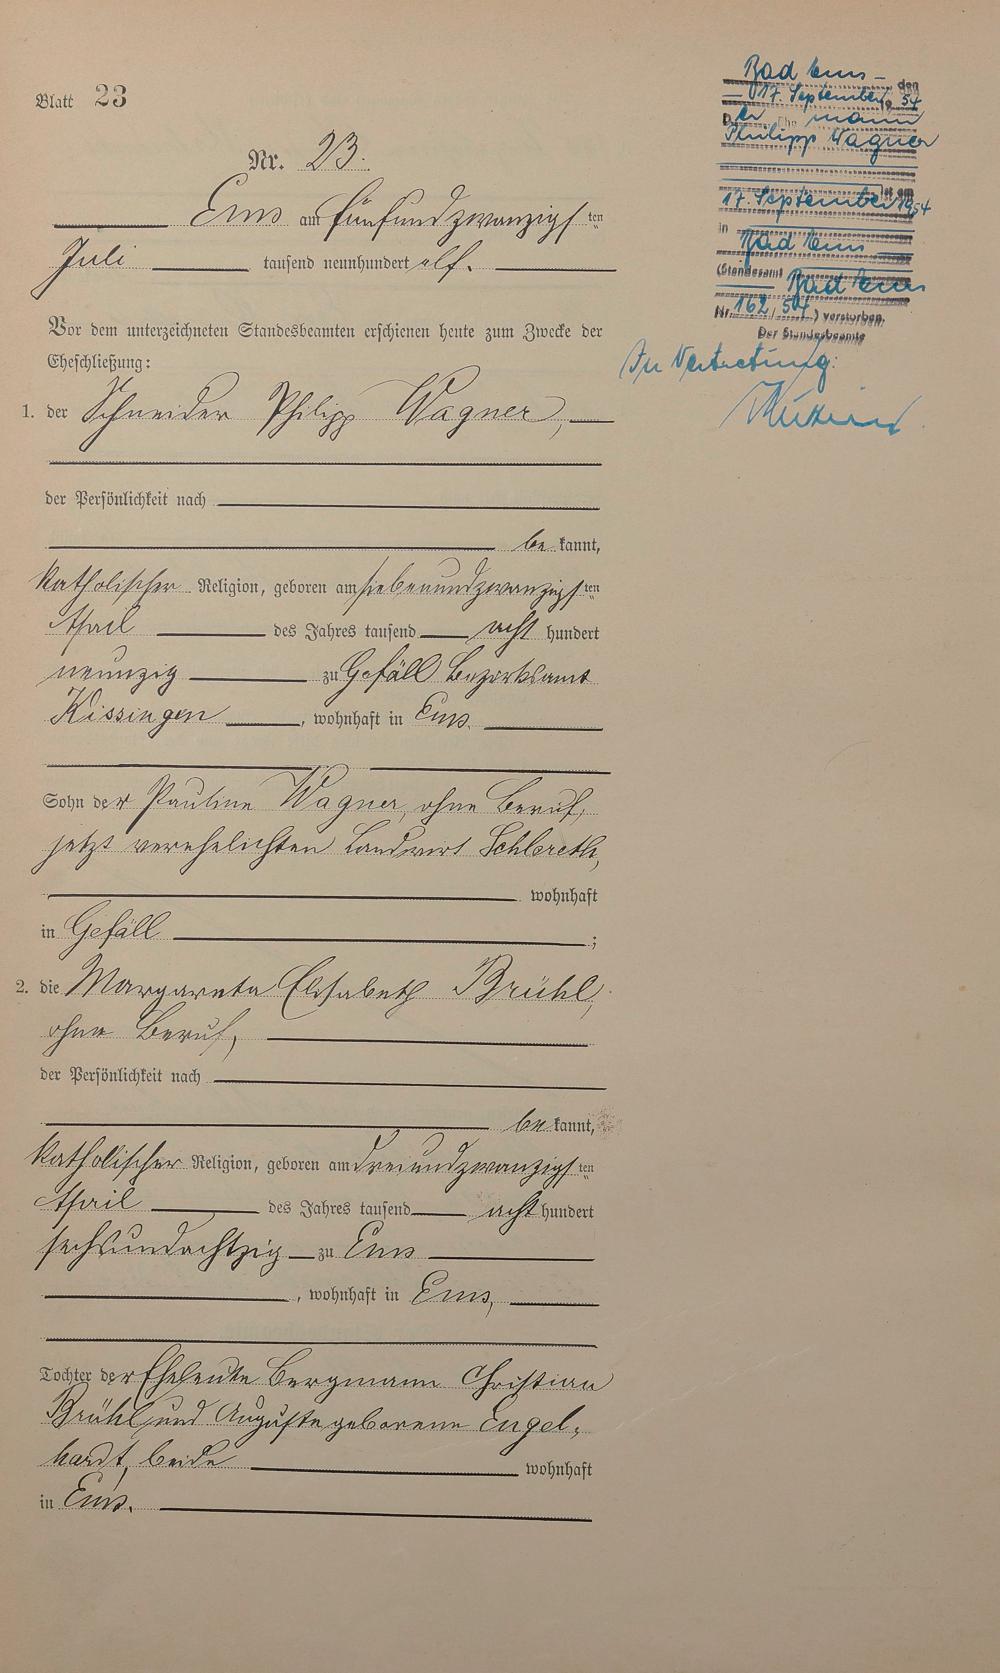 Blatt 23
Nr. 23.
Ems am fünfundzwanzigsten
Juli tausend neunhundert elf.
Vor dem unterzeichneten Standesbeamten erschienen heute zum Zwecke der
Eheschließung:
1. der Schneider Philipp Wagner,
der Persönlichkeit nach
be kannt,
katholischer Religion, geboren am siebenundzwanzigsten
April des Jahres tausend acht hundert
neunzig zu Gefäll Bezirksamt
Kissingen, wohnhaft in Ems.
Sohn der Pauline Wagner, ohne Beruf,
jetzt verehelichten Landwirt Schlereth,
wohnhaft
in Gefäll ;
2. die Margareta Elisabeth Brühl,
ohne Beruf,
der Persönlichkeit nach
be kannt,
katholischer Religion, geboren am dreiundzwanzigsten
April des Jahres tausend acht hundert
sechsundachtzig zu Ems
, wohnhaft in Ems,
Tochter der Eheleute Bergmann Christian
Brühl und Auguste geborene Engel-
hardt, beide wohnhaft
in Ems.
Bad Ems, den
17. September 1954
Der Ehemann
Philipp Wagner
ist am
17. September 1954
in Bad Ems
(Standesamt Bad Ems
Nr. 162/54) verstorben.
Der Standesbeamte
In Vertretung: